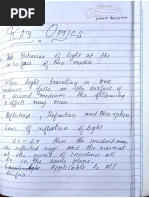 RAY OPTICS
Behavior of light at the
interface of two media
When light travelling in one
medium falls on the surface of
a second medium the following
effects may
Reflection, Refraction and Absorption
Laws of reflection of light
then the incident ray,
the reflected ray and the normal
at the point of incidence all
lie in the same plane.
Applicable to all